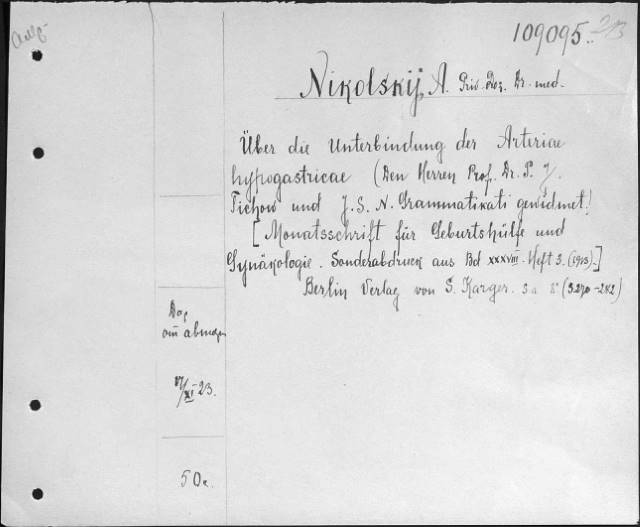 109095.
Nikolskij, A. Priv. Doz. Dr. med.
Über die Unterbindung der Arteriae
hypogastricae (Den Herren Prof. Dr. P. J.
Tichow und J. S. N. Grammatikati gewidmet!
[Monatsschrift für Geburtshülfe und
Gynäkologie. Sonderabdruck aus Bd XXXVIII. Heft 3. (1913).]
Berlin Verlag von S. Karger. 8° (S. 270-282)
XI 23.
50